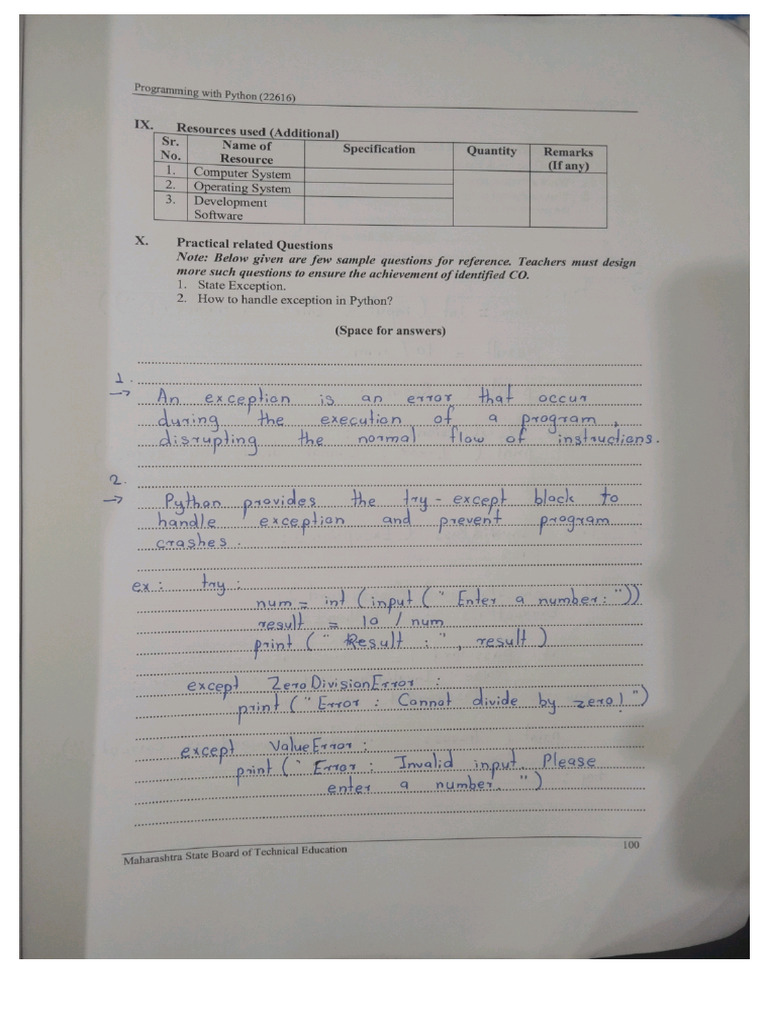 Programming with Python (22616)
IX. Resources used (Additional)
Sr. No. Name of Resource Specification Quantity Remarks (If any)
1. Computer System
2. Operating System
3. Development Software
X. Practical related Questions
Note: Below given are few sample questions for reference. Teachers must design
more such questions to ensure the achievement of identified CO.
1. State Exception.
2. How to handle exception in Python?
(Space for answers)
1.
→ An exception is an error that occur
during the execution of a program,
disrupting the normal flow of instructions.
2.
→ Python provides the try-except block to
handle exception and prevent program
crashes.
ex: try:
num = int (input (" Enter a number: "))
result = 10 / num
print (" Result : ", result)
except ZeroDivisionError :
print (" Error : Cannot divide by zero!")
except ValueError :
print (" Error : Invalid input. Please
enter a number. ")
Maharashtra State Board of Technical Education 100